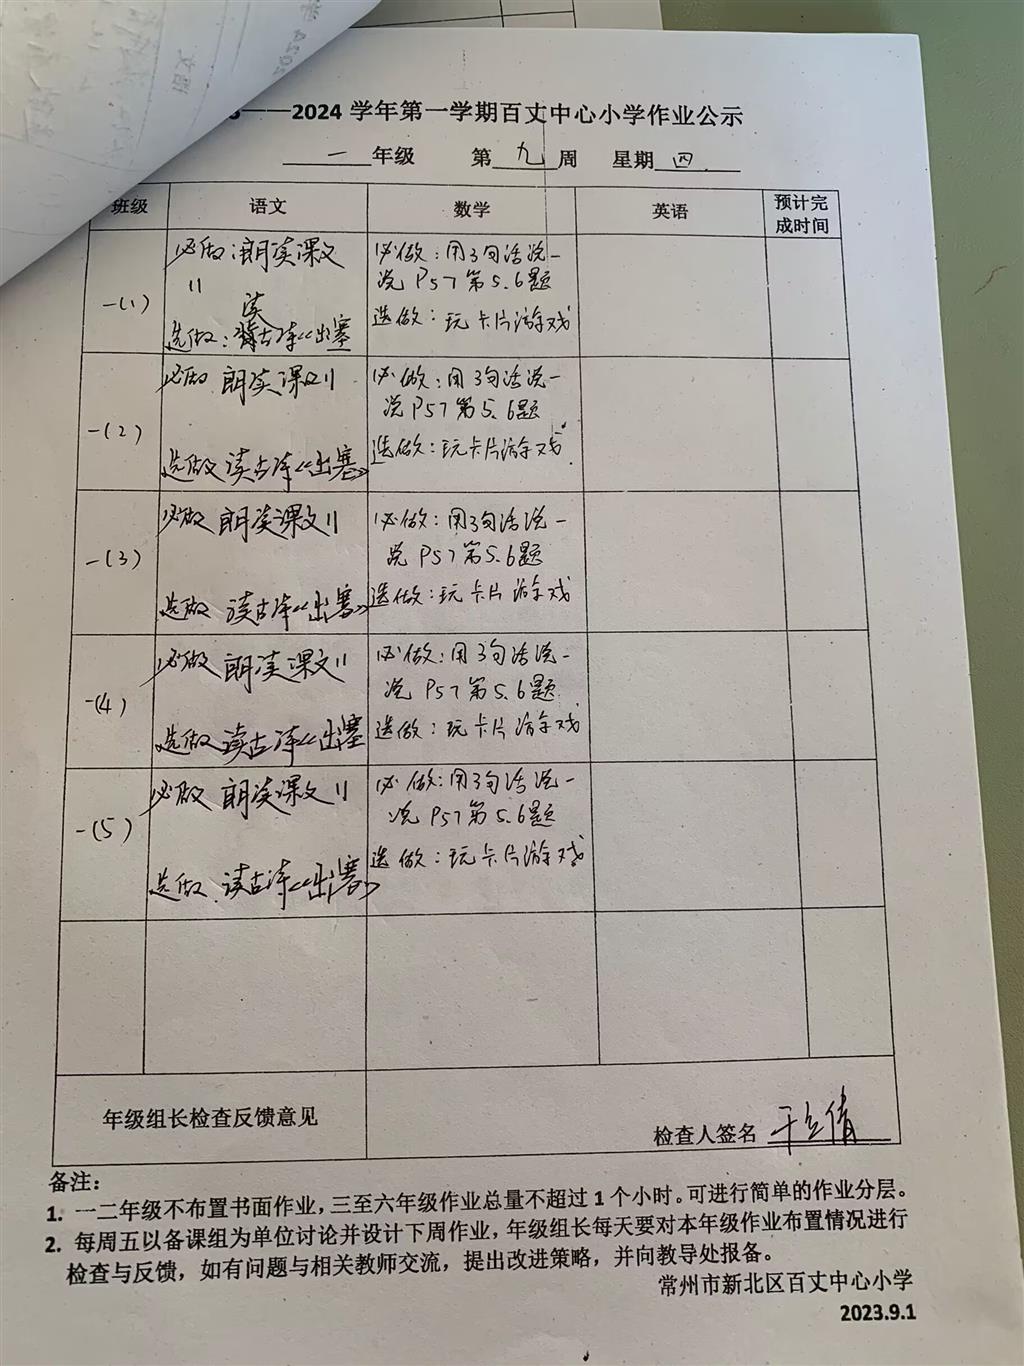 ——2024 学年第一学期百丈中心小学作业公示
一 年级 第 九 周 星期 四
班级 语文 数学 英语 预计完成时间
一(1)
必做:朗读课文
11
读
选做:背古诗《出塞
必做:用3句话说一
说P57第5.6题
选做:玩卡片游戏
一(2)
必做 朗读课文11
选做 读古诗《出塞》
必做:用3句话说一
说P57第5.6题
选做:玩卡片游戏
一(3)
必做 朗读课文11
选做 读古诗《出塞》
必做:用3句话说一
说P57第5.6题
选做:玩卡片游戏
一(4)
必做 朗读课文11
选做 读古诗《出塞
必做:用3句话说一
说P57第5.6题
选做:玩卡片游戏
一(5)
必做 朗读课文11
选做 读古诗《出塞》
必做:用3句话说一
说P57第5.6题
选做:玩卡片游戏
年级组长检查反馈意见
检查人签名
备注:
1. 一二年级不布置书面作业,三至六年级作业总量不超过1个小时。可进行简单的作业分层。
2. 每周五以备课组为单位讨论并设计下周作业,年级组长每天要对本年级作业布置情况进行
检查与反馈,如有问题与相关教师交流,提出改进策略,并向教导处报备。
常州市新北区百丈中心小学
2023.9.1